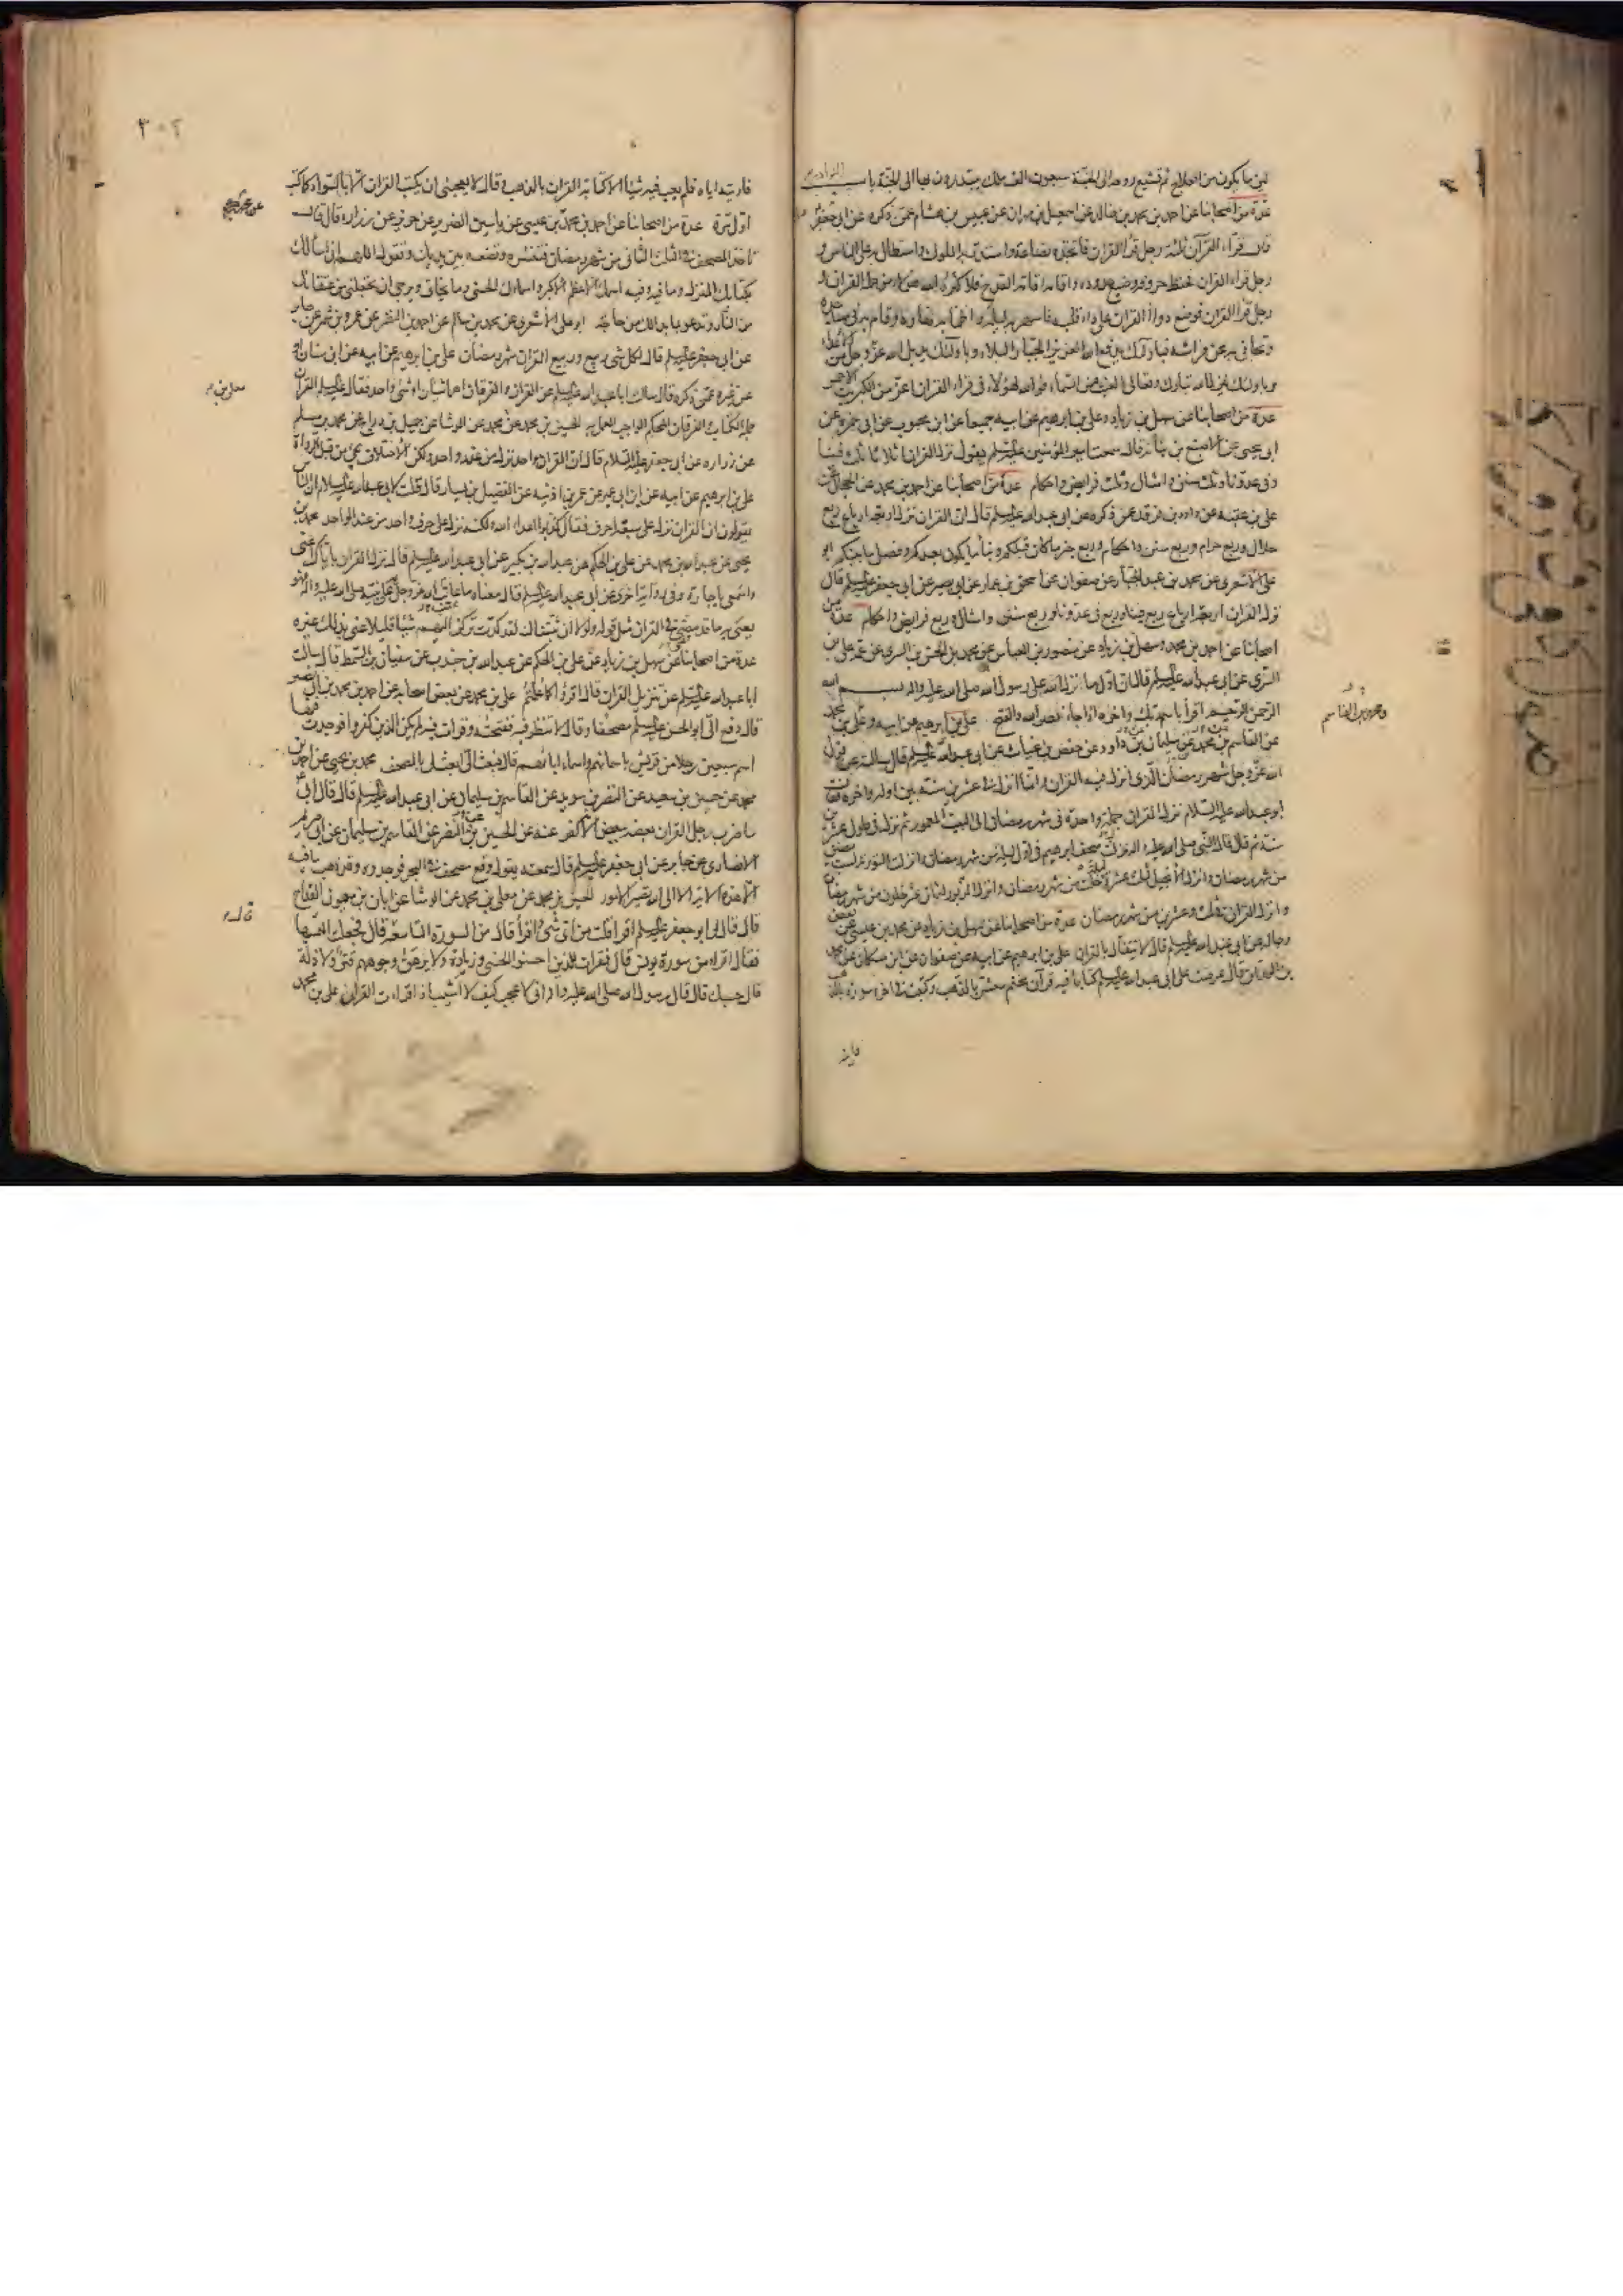 عدة من اصحابنا عن احمد بن محمد بن خالد عن اسمعيل بن مهران عن عبيس بن هشام عمن ذكره عن ابى جعفر
قال قراء القرآن ثلثة رجل قرا القران فاتخذه بضاعة واستدر به الملوك واستطال به على الناس و
رجل قراء القران فحفظ حروفه وضيع حدوده واقامه اقامة القدح فلا كثر الله هؤلاء من حملة القران و
رجل قرا القران فوضع دواء القران على داء قلبه فاسهر به ليله واظمأ به نهاره وقام به فى مساجده
وتجافى به عن فراشه فباولئك يدفع الله العزيز الجبار البلاء وباولئك يديل الله عز وجل من الاعداء
وباولئك ينزل الله تبارك وتعالى الغيث من السماء فوالله لهؤلاء فى قراء القران اعز من الكبريت الاحمر
عدة من اصحابنا عن سهل بن زياد وعلى بن ابرهيم عن ابيه جميعا عن ابن محبوب عن ابى حمزه عن
ابى يحيى عن الاصبغ بن نباته قال سمعت امير المؤمنين عليه السلم يقول نزل القران اثلاثا ثلث فينا
وفى عدونا وثلث سنن وامثال وثلث فرايض واحكام عدة من اصحابنا عن احمد بن محمد عن الحجال عن
على بن عقبه عن داود بن فرقد عمن ذكره عن ابى عبد الله عليه السلم قال ان القران نزل اربعة ارباع ربع
حلال وربع حرام وربع سنن واحكام وربع خبر ما كان قبلكم ونبأ ما يكون بعدكم وفصل ما بينكم ابو
على الاشعرى عن محمد بن عبد الجبار عن صفوان عن اسحق بن عمار عن ابى بصير عن ابى جعفر عليه السلم قال
نزل القران اربعة ارباع ربع فينا وربع فى عدونا وربع سنن وامثال وربع فرايض واحكام عدة من
اصحابنا عن احمد بن محمد وسهل بن زياد عن منصور بن العباس عن محمد بن الحسن بن السرى عن عمه على بن
السرى عن ابى عبد الله عليه السلم قال ان اول ما نزل الله على رسول الله صلى الله عليه واله بسم الله
الرحمن الرحيم اقرأ باسم ربك واخره اذا جاء نصر الله والفتح على بن ابرهيم عن ابيه وعلى بن محمد
عن القاسم بن محمد عن سليمان بن داود عن حفص بن غياث عن ابى عبد الله عليه السلم قال سالته عن قول
الله عز وجل شهر رمضان الذى انزل فيه القران وانما انزل فى عشرين سنة بين اوله واخره فقال
ابو عبد الله عليه السلام نزل القران جملة واحدة فى شهر رمضان الى البيت المعمور ثم نزل فى طول عشرين
سنة ثم قال قال النبى صلى الله عليه واله نزلت صحف ابرهيم فى اول ليلة من شهر رمضان وانزلت التورية لست مضين
من شهر رمضان وانزل الانجيل لثلث عشرة ليلة خلت من شهر رمضان وانزل الزبور لثمان عشر خلون من شهر رمضان
وانزل القران فى ثلث وعشرين من شهر رمضان عدة من اصحابنا عن سهل بن زياد عن محمد بن عيسى عن بعض
رجاله عن ابى عبد الله عليه السلم قال لا تتفأل بالقران على بن ابرهيم عن ابيه عن صفوان عن ابن مسكان عن محمد
بن الوراق قال عرضت على ابى عبد الله عليه السلم كتابا فيه قرآن مختم معشر بالذهب وكتب فى اخره سورة بالذهب
فاريته
ومحمد بن القاسم
٣٠٢
فاريته اياه فلم يعب فيه شيئا الا كتابة القران بالذهب وقال لا يعجبنى ان يكتب القران الا بالسواد كما كتب
اول مرة عدة من اصحابنا عن احمد بن محمد بن عيسى عن ياسين الضرير عن حريز عن زراره قال قال
تاخذ المصحف فى الثلث الثانى من شهر رمضان فتنشره وتضعه بين يديك وتقول اللهم انى اسألك
بكتابك المنزل وما فيه وفيه اسمك الاعظم الاكبر واسماؤك الحسنى وما يخاف ويرجى ان تجعلنى من عتقائك
من النار وتدعو بما بدا لك من حاجة ابو على الاشعرى عن محمد بن سالم عن احمد بن النضر عن عمرو بن شمر عن جابر
عن ابى جعفر عليه السلم قال لكل شى ربيع وربيع القران شهر رمضان على بن ابرهيم عن ابيه عن ابن سنان او
عن غيره عمن ذكره قال سالت ابا عبد الله عليه السلم عن القران والفرقان اهما شيئان او شىء واحد فقال عليه السلم القران
جملة الكتاب والفرقان المحكم الواجب العمل به الحسين بن محمد عن محمد عن الوشا عن جميل بن دراج عن محمد بن مسلم
عن زراره عن ابى جعفر عليه السلام قال ان القران واحد نزل من عند واحد ولكن الاختلاف يجىء من قبل الرواة
على بن ابرهيم عن ابيه عن ابن ابى عمير عن عمر بن اذينه عن الفضيل بن يسار قال قلت لابى عبد الله عليه السلام ان الناس
يقولون ان القران نزل على سبعة احرف فقال كذبوا اعداء الله ولكنه نزل على حرف واحد من عند الواحد محمد بن
يحيى عن عبد الله بن محمد عن على بن الحكم عن عبد الله بن بكير عن ابى عبد الله عليه السلم قال نزل القران باياك اعنى
واسمعى يا جارة وفى رواية اخرى عن ابى عبد الله عليه السلم قال معناه ما عاتب الله عز وجل به على نبيه صلى الله عليه واله فهو
يعنى به ما قد مضى فى القران مثل قوله ولولا ان ثبتناك لقد كدت تركن اليهم شيئا قليلا عنى بذلك غيره
عدة من اصحابنا عن سهل بن زياد عن على بن الحكم عن عبد الله بن جندب عن سفيان بن السمط قال سالت
ابا عبد الله عليه السلم عن تنزيل القران قال اقرؤا كما علمتم على بن محمد عن بعض اصحابه عن احمد بن محمد بن ابى نصر
قال دفع الى ابو الحسن عليه السلم مصحفا وقال لا تنظر فيه ففتحته وقرات فيه لم يكن الذين كفروا فوجدت فيها
اسم سبعين رجلا من قريش باسمائهم واسماء ابائهم قال فبعث الى ابعث الى بالمصحف محمد بن يحيى عن احمد بن
محمد عن حسين بن سعيد عن النضر بن سويد عن القاسم بن سليمان عن ابى عبد الله عليه السلم قال قال ابى
ما ضرب رجل القران بعضه ببعض الا كفر عنه عن الحسين بن النضر عن القاسم بن سليمان عن ابى مريم
الانصارى عن جابر عن ابى جعفر عليه السلم قال سمعته يقول وقع مصحف فى البحر فوجدوه وقد ذهب ما فيه
الا هذه الاية الا الى الله تصير الامور الحسين بن محمد عن معلى بن محمد عن الوشا عن ابان بن ميمون القداح
قال قال لى ابو جعفر عليه السلم اقرا قلت من اى شىء اقرأ قال من السورة التاسعة قال فجعلت التمسها
فقال اقرا من سورة يونس قال فقرات للذين احسنوا الحسنى وزيادة ولا يرهق وجوههم قتر ولا ذلة
قال حسبك قال قال رسول الله صلى الله عليه واله انى لاعجب كيف لا اشيب اذا قرات القران على بن محمد
معلى بن
قال